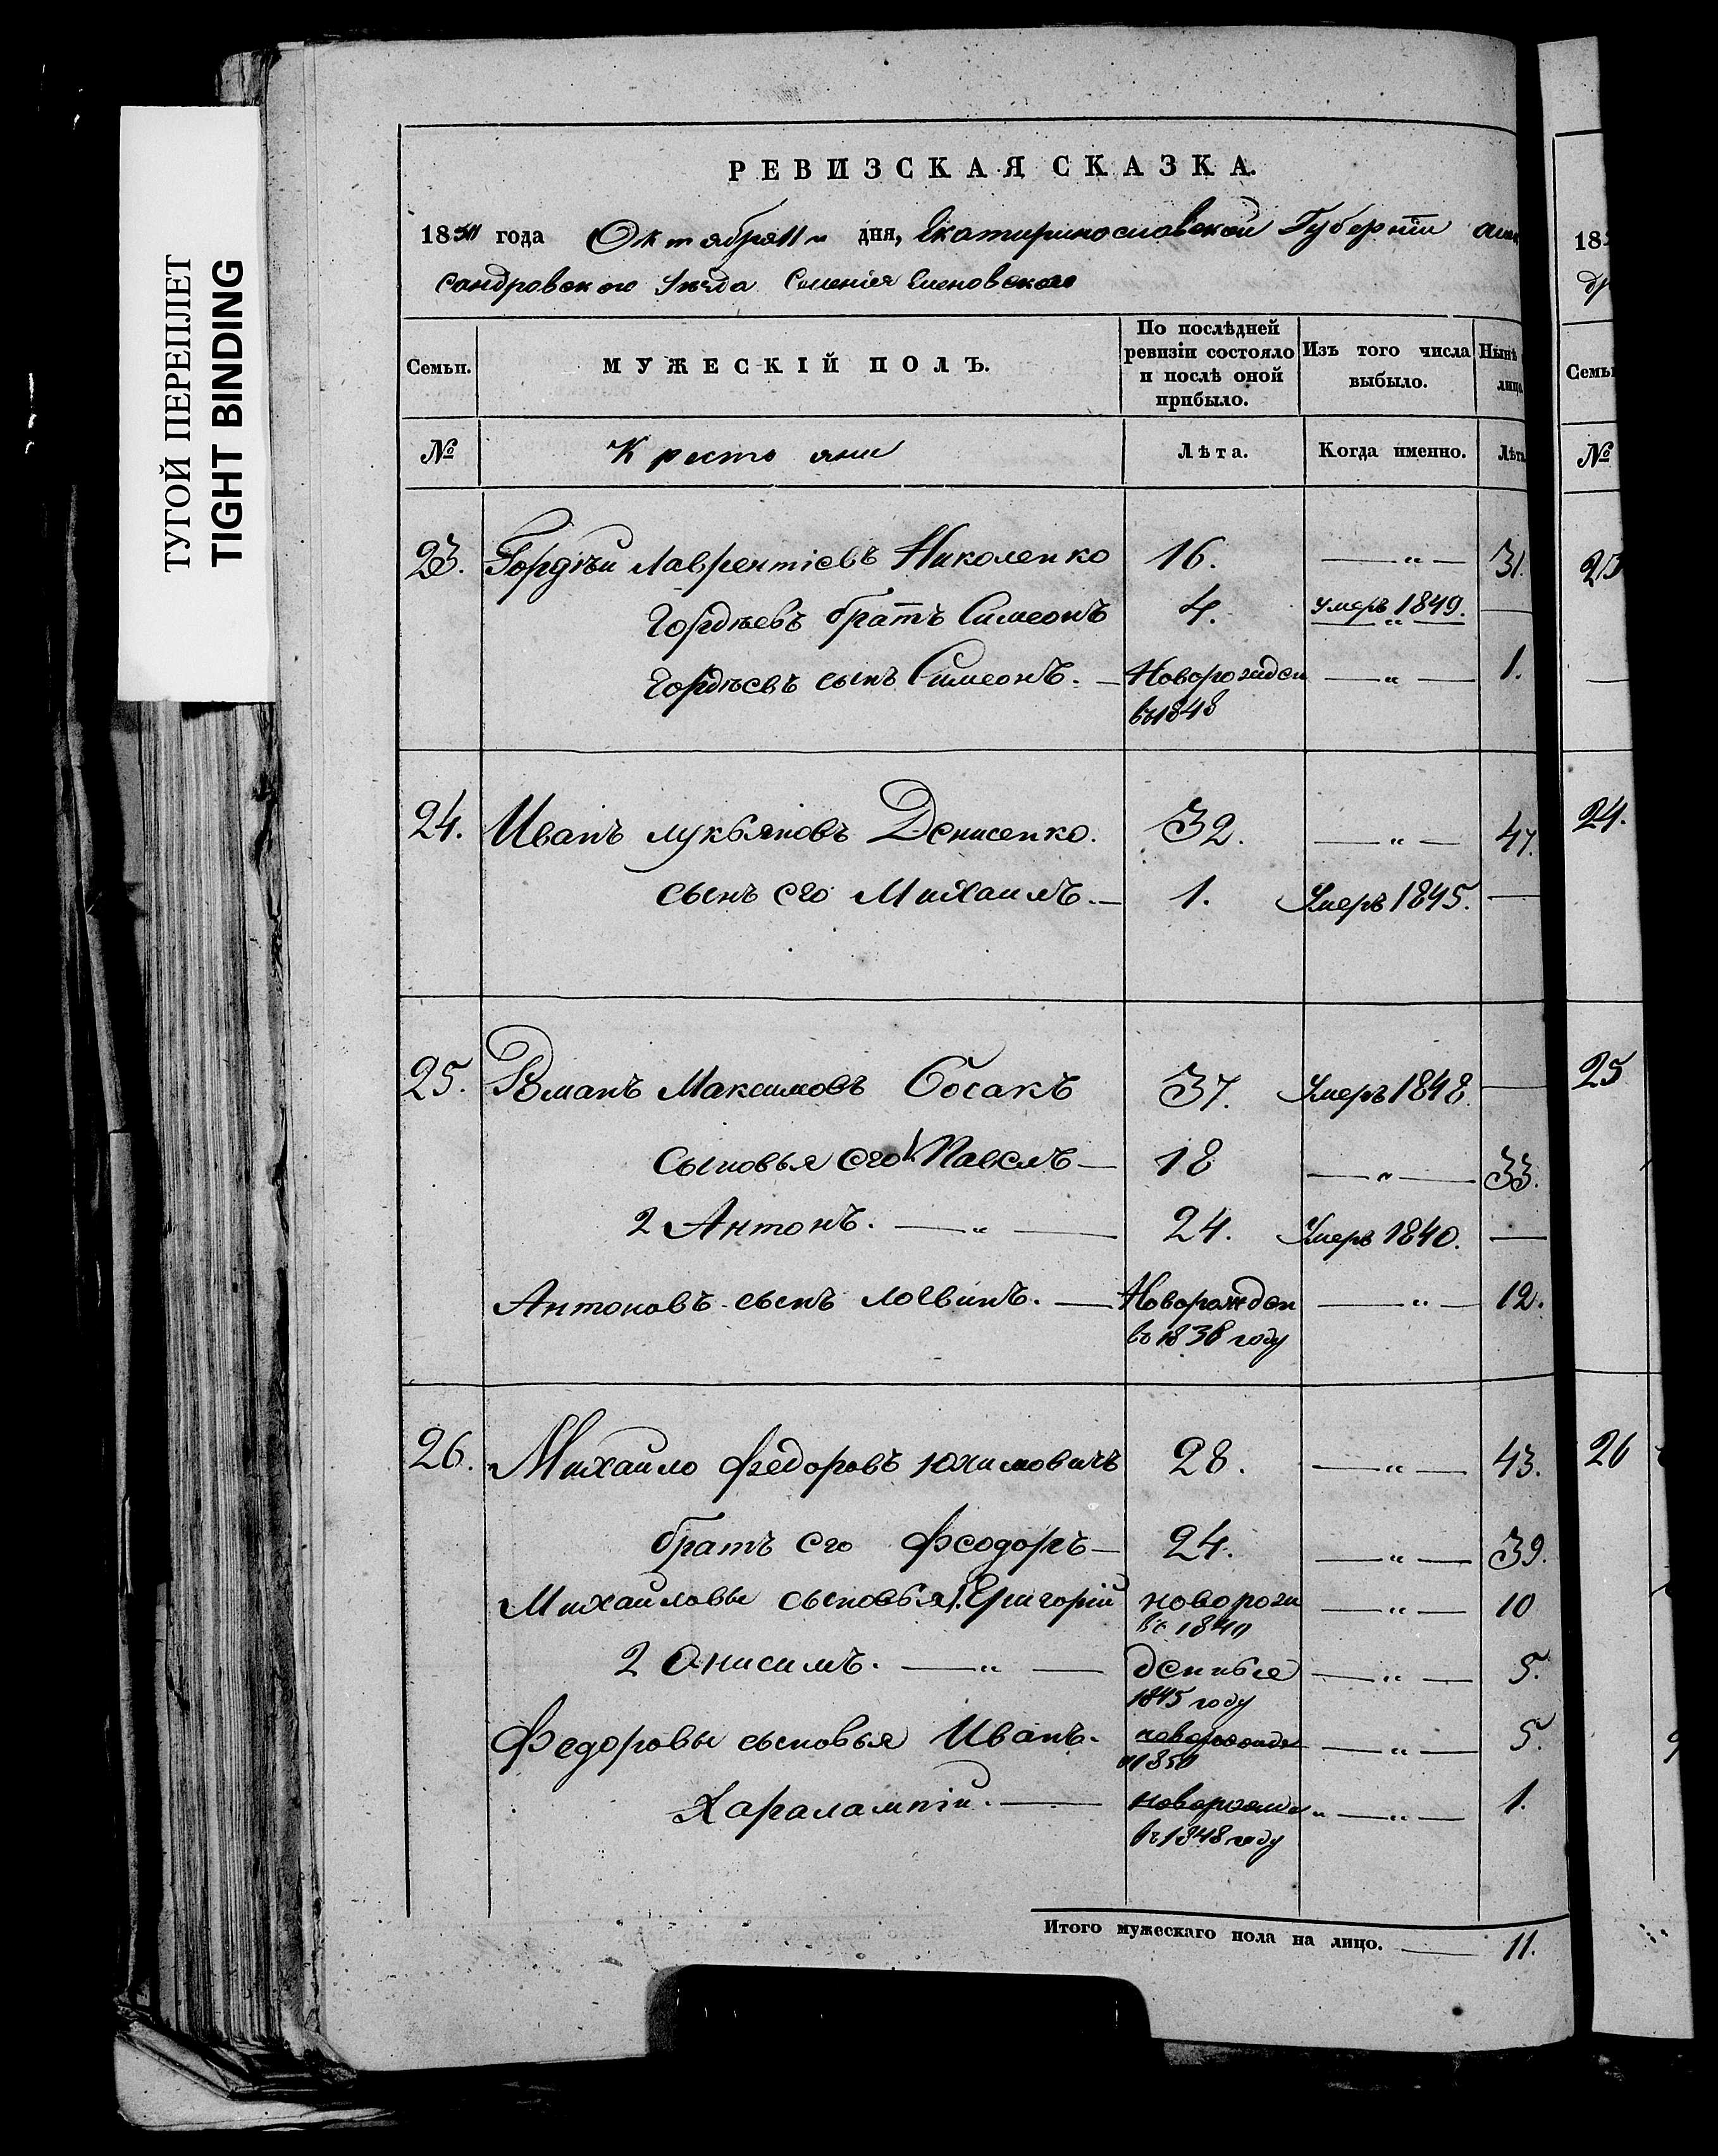 ТУГОЙ ПЕРЕПЛЕТ
TIGHT BINDING
РЕВИЗСКАЯ СКАЗКА.
1850 года Октября 11 дня, Екатеринославской Губерніи Алек
сандровского Уѣзда Селенія Еленовского
Семьи. МУЖЕСКІЙ ПОЛЪ. По послѣдней ревизіи состояло и послѣ оной прибыло. Изъ того числа выбыло. Нынѣ лицо
№ Крестьяни Лѣта. Когда именно. Лѣта
23. Гордѣй Лаврентіевъ Николенко 16. —„— 31.
Гордѣевъ братъ Симеонъ 4. умеръ 1849. —
Гордѣевъ сынъ Симеонъ. — Новорожден —„— 1.
въ 1848
24. Иванъ Лукьяновъ Денисенко. 32. —„— 47.
сынъ его Михаилъ. — 1. Умеръ 1845. —
25. Романъ Максимовъ Сосакъ 37. Умеръ 1848. —
Сыновья его 1 Павелъ — 18 —„— 33.
2 Антонъ. —„— 24. Умеръ 1840. —
Антоновъ сынъ Логвинъ. — Новорожден —„— 12.
въ 1838 году
26. Михайло Федоровъ Юхимовичъ 28. —„— 43.
братъ его Феодоръ — 24. —„— 39.
Михайловы сыновья 1. Григорій новорож —„— 10
въ 1840
2 Онисимъ. —„— денные —„— 5.
1845 году
Федоровы сыновья Иванъ. новорожде —„— 5.
1850
Харалампій. — новорожде „—„— 1.
въ 1848 году
Итого мужескаго пола на лицо. — 11.
18
др
Семьи
№
23
24.
25
26